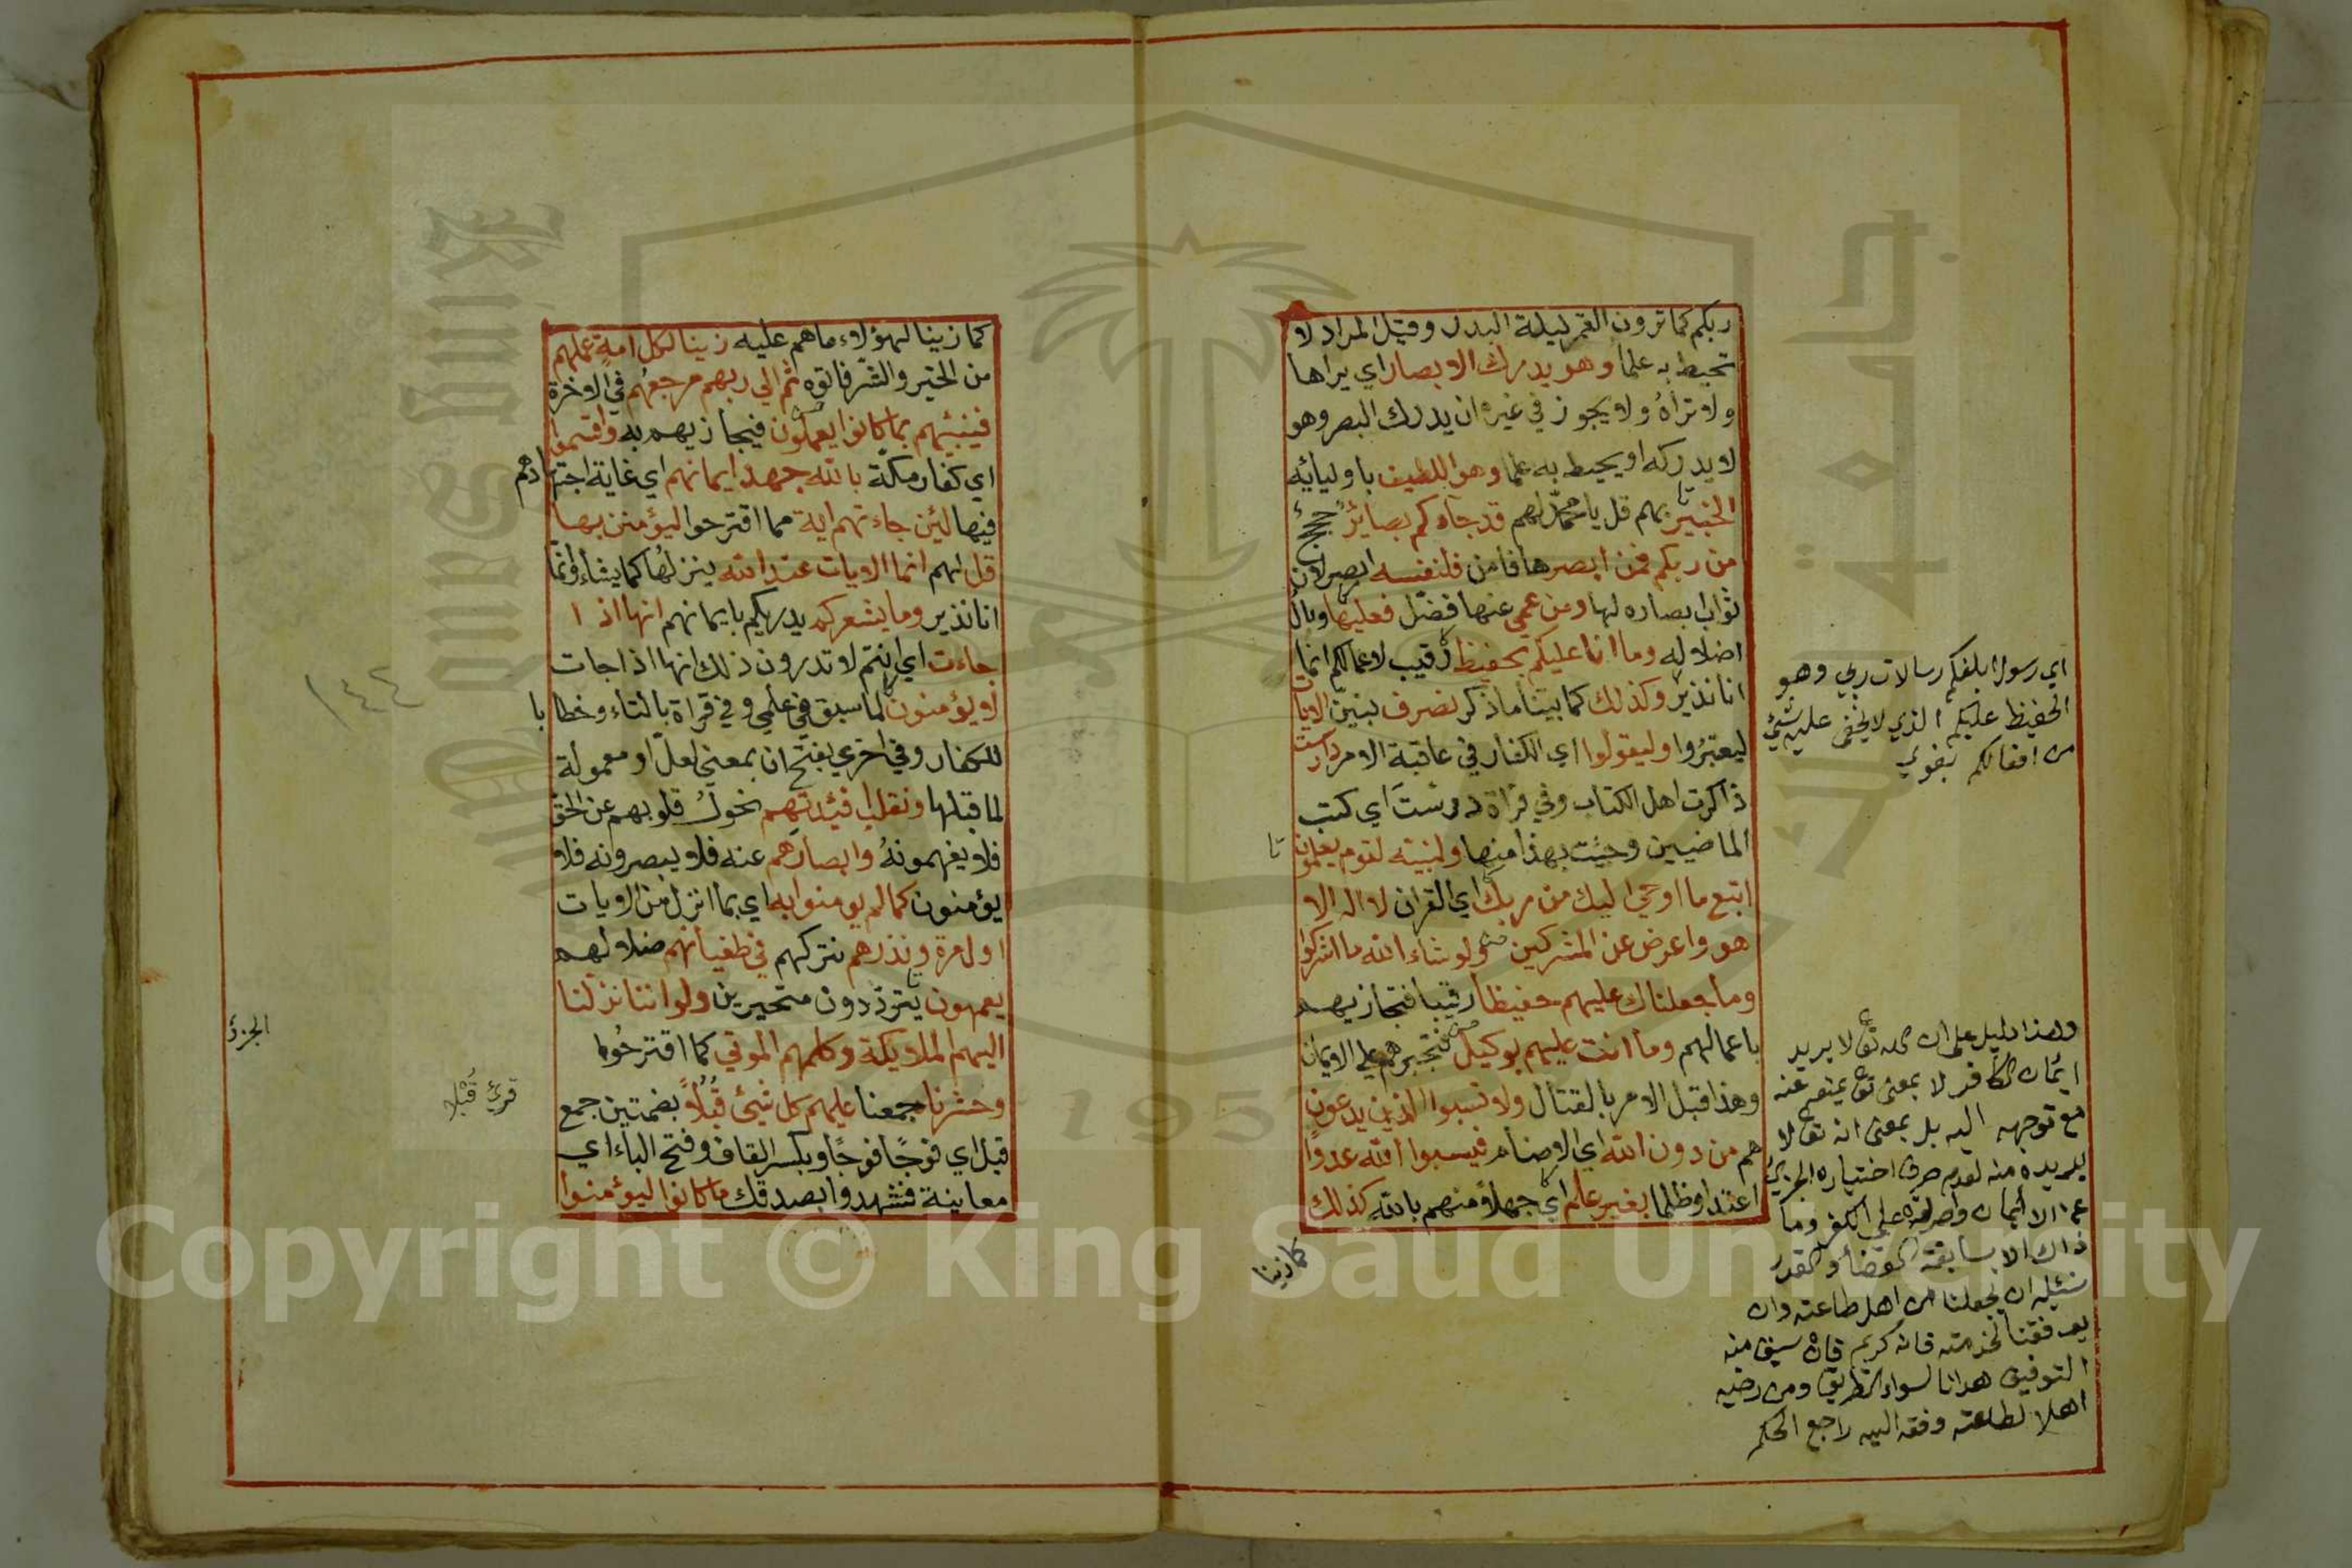 ربكم كما ترون القمر ليلة البدر وقيل المراد لا
تحيط به علما وهو يدرك الابصار اي يراها
ولا تراه ولا يجوز في غيره ان يدرك البصر وهو
لا يدركه او يحيط به علما وهو اللطيف باوليائه
الخبير بهم قل يا محمد لهم قد جاءكم بصائر حجج
من ربكم فمن ابصرها فامن فلنفسه ابصر لان
ثواب ابصاره لها ومن عمي عنها فضل فعليها وبال
اضلاله وما انا عليكم بحفيظ رقيب لاعمالكم انما
انا نذير وكذلك كما بينا ما ذكر نصرف نبين الايات
ليعتبروا وليقولوا اي الكفار في عاقبة الامر دارست
ذاكرت اهل الكتاب وفي قراة درست اي كتب
الماضيين وجئت بهذا منها ولنبينه لقوم يعلمون
اتبع ما اوحي اليك من ربك اي القران لا اله الا
هو واعرض عن المشركين ولو شاء الله ما اشركوا
وما جعلناك عليهم حفيظا رقيبا فتجازيهم
باعمالهم وما انت عليهم بوكيل فتجبرهم على الايمان
وهذا قبل الامر بالقتال ولا تسبوا الذين يدعون
هم من دون الله اي الاصنام فيسبوا الله عدوا
اعتداء وظلما بغير علم اي جهلا منهم بالله كذلك
كما زينا
اي رسول ابلغكم رسالات ربي وهو
الحفيظ عليكم الذي لا يخفى عليه شئ
من افعالكم بغوي
وهذا دليل على ان الله تع لا يريد
ايمان الكافر لا بمعنى تع يمنعه عنه
مع توجهه اليه بل بمعنى انه تع لا
يريده منه لعدم صرف اختياره الجزئ
عن الايمان وصرفه على الكفر وما
ذاك الا بسابقة القضاء والقدر
نسئله ان يجعلنا من اهل طاعته وان
يوفقنا لخدمته فانه كريم فان سبق منه
التوفيق هدانا لسواء الطريق ومن رضيه
اهلا لطاعته وفقه اليه راجع الحكم
كما زينا لهؤلاء ما هم عليه زينا لكل امة عملهم
من الخير والشر فاتوه ثم الي ربهم مرجعهم في الاخرة
فينبئهم بما كانوا يعملون فيجازيهم به واقسموا
اي كفار مكة بالله جهد ايمانهم اي غاية اجتهادهم
فيها لئن جاءتهم اية مما اقترحوا ليؤمنن بها
قل لهم انما الايات عند الله ينزلها كما يشاء وانما
انا نذير وما يشعركم يدريكم بايمانهم انها اذا
جاءت اي انتم لا تدرون ذلك انها اذا جات
لا يؤمنون لما سبق في علمي وفي قراة بالتاء وخطابا
للكفار وفي اخري بفتح ان بمعنى لعل او معمولة
لما قبلها ونقلب افئيدتهم نحول قلوبهم عن الحق
فلا يفهمونه وابصارهم عنه فلا يبصرونه فلا
يؤمنون كما لم يومنوا به اي بما انزل من الايات
اول مرة ونذرهم نتركهم في طغيانهم ضلالهم
يعمهون يترددون متحيرين ولو اننا نزلنا
اليهم الملايكة وكلمهم الموتي كما اقترحوا
وحشرنا جمعنا عليهم كل شئ قبلا بضمتين جمع
قبل اي فوجا فوجا وبكسر القاف وفتح الباء اي
معاينة فشهدوا بصدقك ما كانوا ليؤمنوا
١٤٤
الجزؤ
قرئ قبلا
جامعة الملك سعود
King Saud University
1957
Copyright © King Saud University